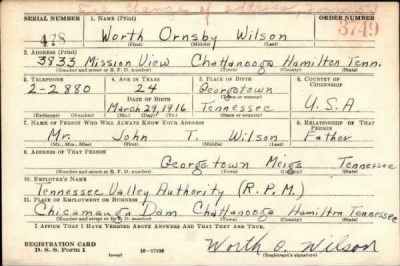 See Change of Address Form
SERIAL NUMBER 1. NAME (Print) ORDER NUMBER
478 Worth Ornsby Wilson 3749
(First) (Middle) (Last)
2. ADDRESS (Print)
3833 Mission View Chattanooga Hamilton Tenn.
(Number and street or R. F. D. number) (Town) (County) (State)
3. TELEPHONE 4. AGE IN YEARS 5. PLACE OF BIRTH 6. COUNTRY OF CITIZENSHIP
2-2880 24 Georgetown
DATE OF BIRTH (Town or county)
March 29, 1916 Tennessee U.S.A
(Exchange) (Number) (Mo.) (Day) (Yr.) (State or country)
7. NAME OF PERSON WHO WILL ALWAYS KNOW YOUR ADDRESS 8. RELATIONSHIP OF THAT PERSON
Mr. John T. Wilson Father
(Mr., Mrs., Miss) (First) (Middle) (Last)
9. ADDRESS OF THAT PERSON
Georgetown Meigs Tennessee
(Number and street or R. F. D. number) (Town) (County) (State)
10. EMPLOYER'S NAME
Tennessee Valley Authority (R.P.M.)
11. PLACE OF EMPLOYMENT OR BUSINESS
Chicamauga Dam Chattanooga Hamilton Tennessee
(Number and street or R. F. D. number) (Town) (County) (State)
I AFFIRM THAT I HAVE VERIFIED ABOVE ANSWERS AND THAT THEY ARE TRUE.
REGISTRATION CARD
D. S. S. Form 1 (over) Worth O. Wilson
(Registrant's signature)